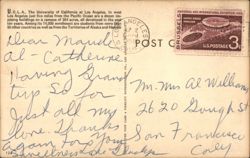 U.C.L.A. The University of California at Los Angeles, in west
Los Angeles just five miles from the Pacific Ocean are a dozen im-
posing buildings on a campus of 384 acres, all developed in the past
ten years. Among its 14,000 enrollment are students from some
60 other countries as well as from the Territories of Alaska and Hawaii.
POST C
U.S. POSTAGE
3¢
Dear Maude
al - Catherine
Having Grand
trip So far
Just all my
love Thanks
again for your
Mr. Mrs Al Williams
2620 Gough St
San Francisco
Calif